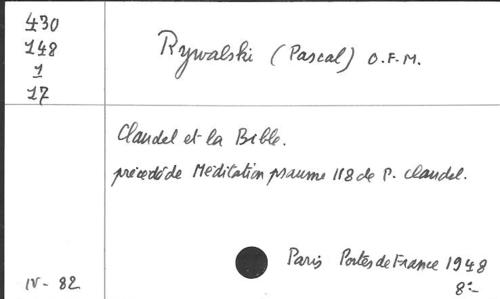 430
148
1
17
Rywalski (Pascal) O.F.M.
Claudel et la Bible.
précédé de Méditation psaume 118 de P. Claudel.
Paris Portes de France 1948
8º
IV - 82